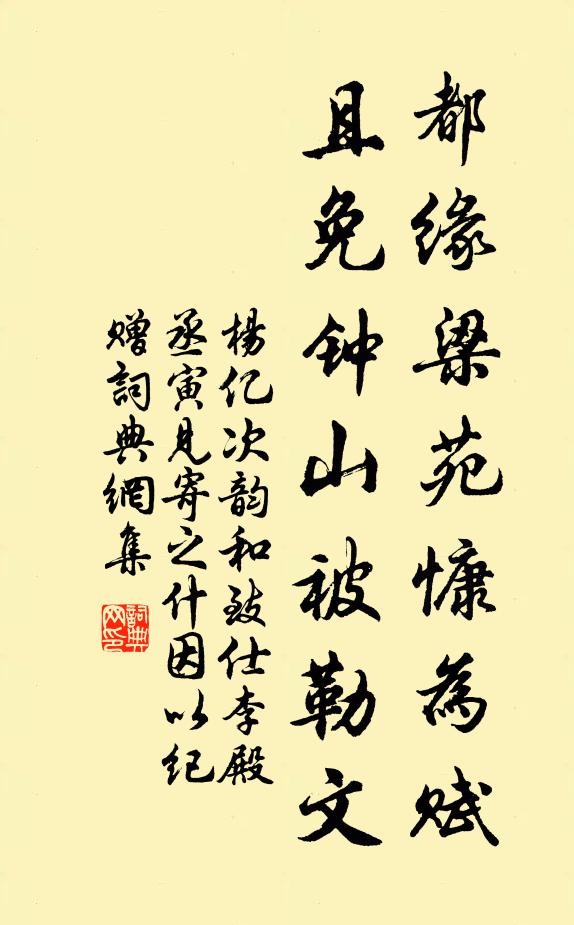 都缘梁苑慵为赋
且免钟山被勒文
杨亿次韵和致仕李殿
丞寅见寄之什因以纪
赠词典網集
詞典网印